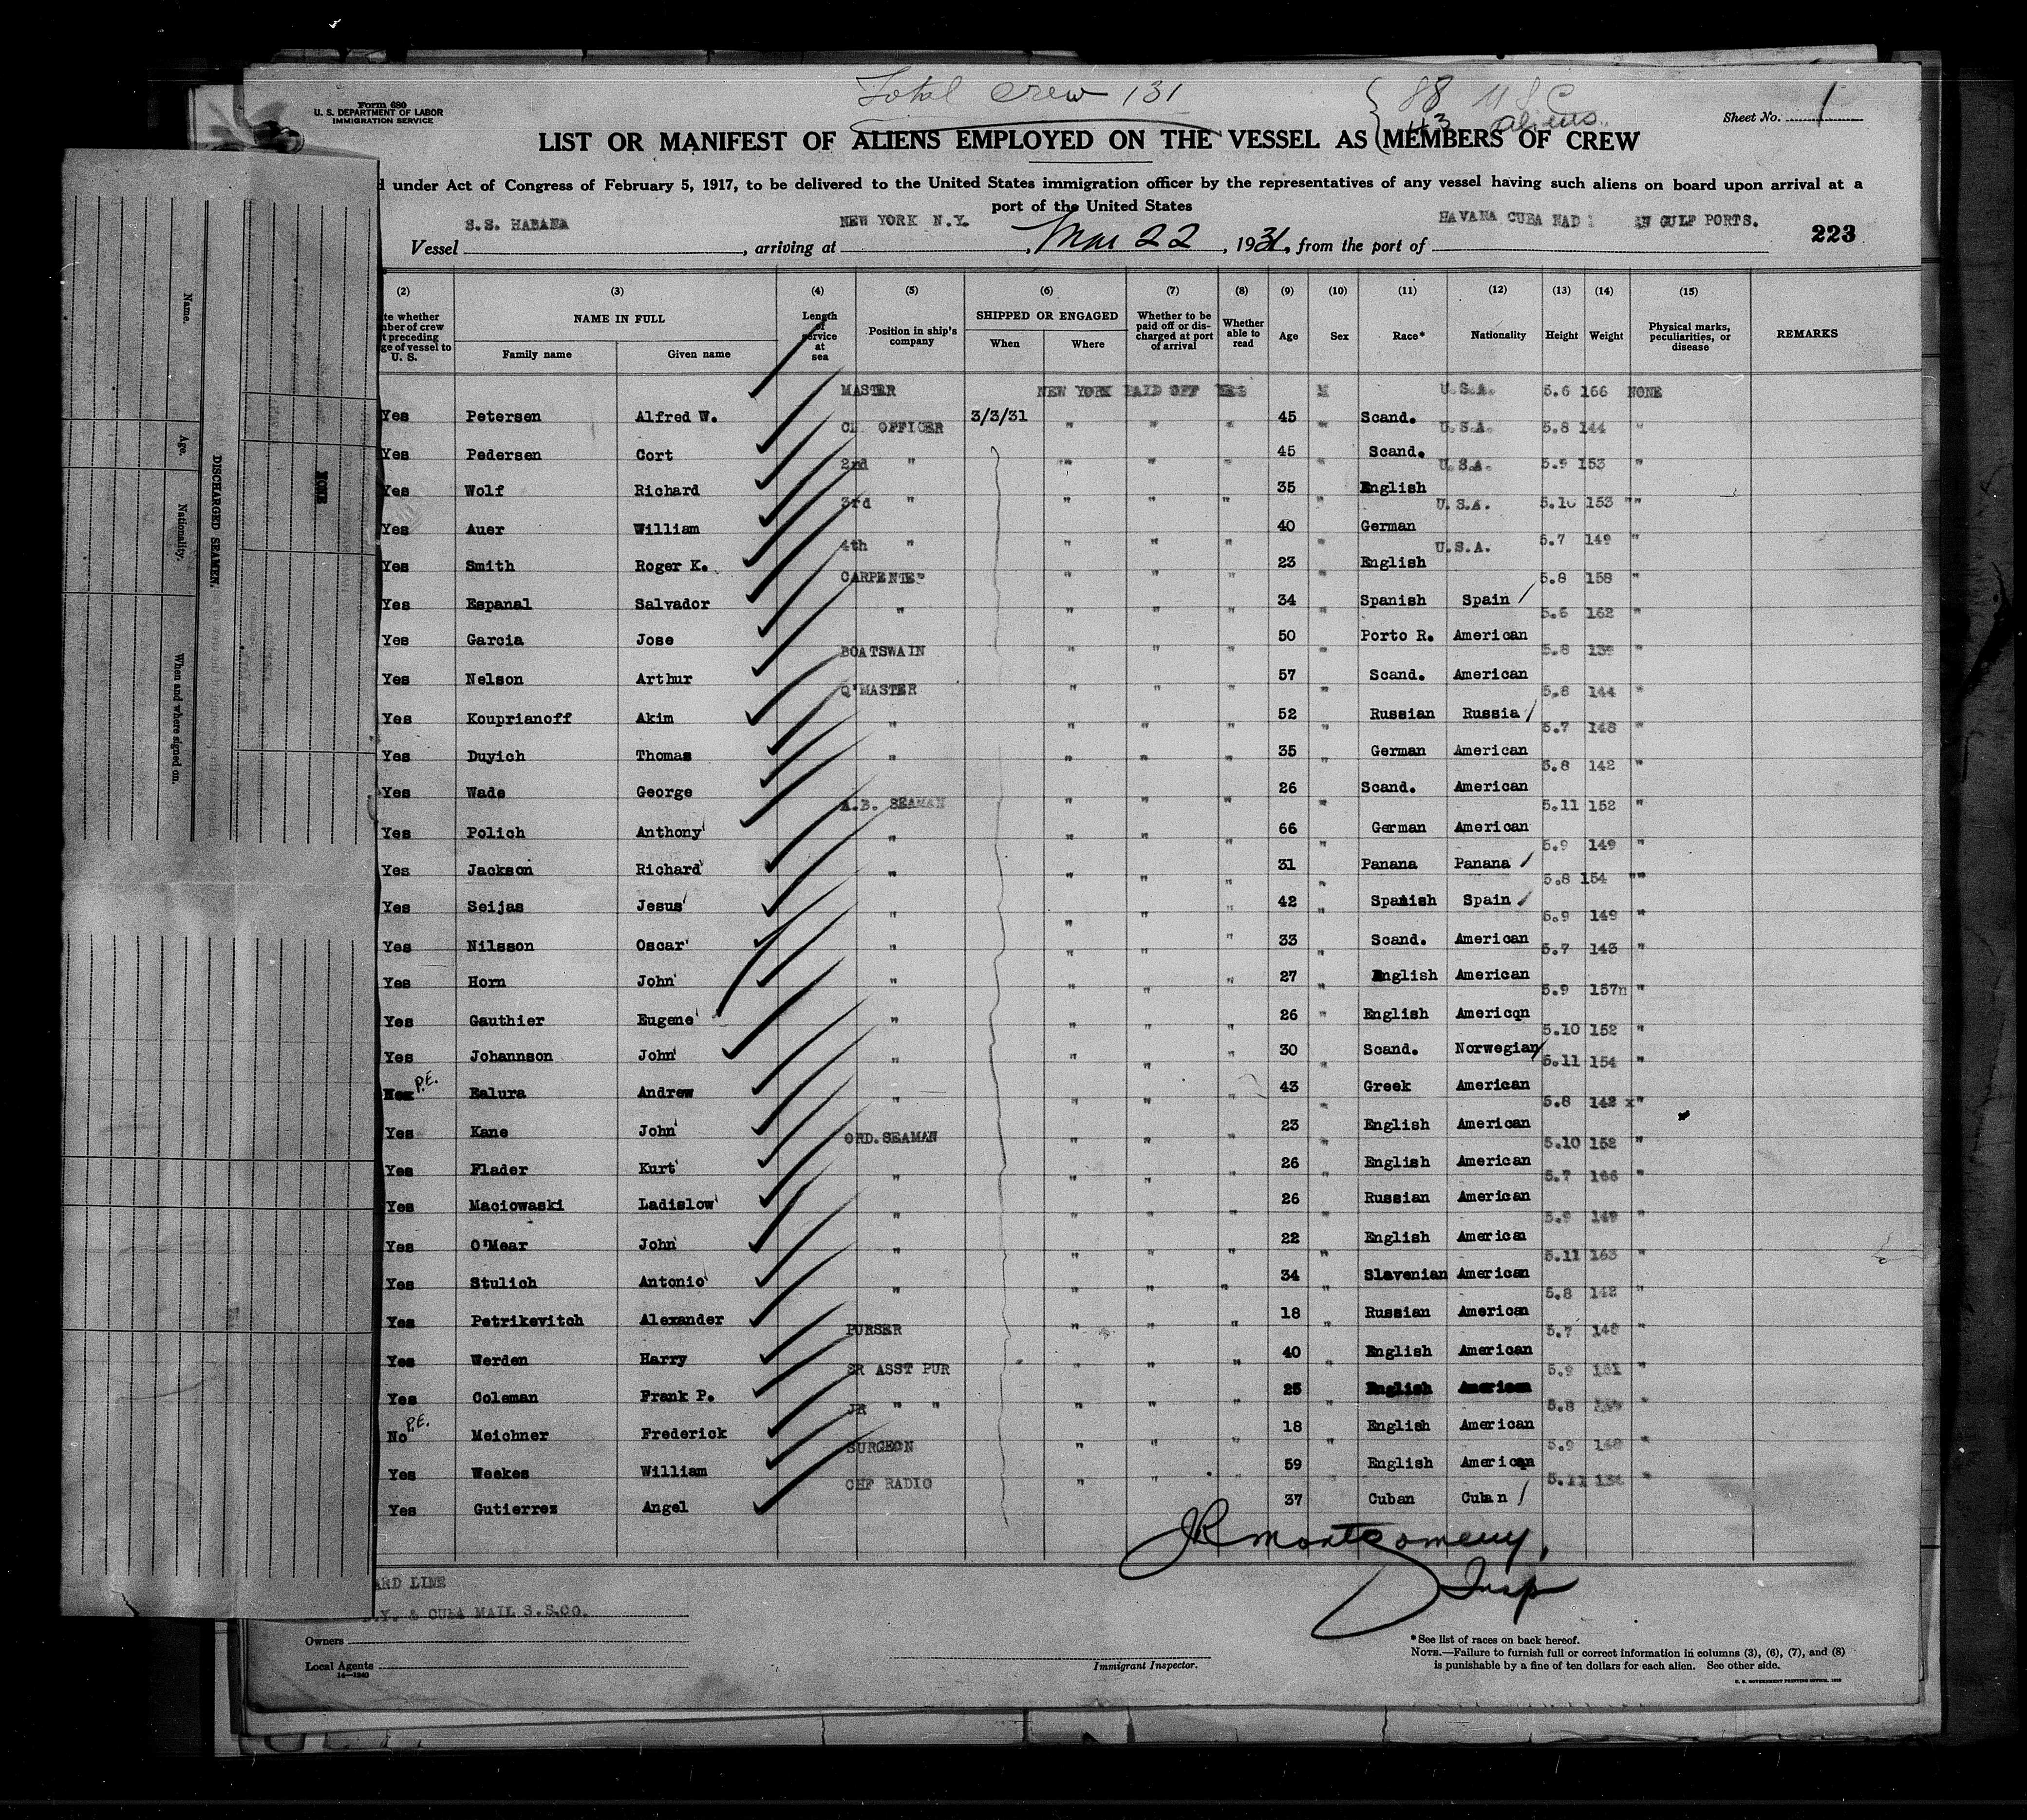 Total crew 131
88 USC
43 aliens
Form 680
U. S. DEPARTMENT OF LABOR
IMMIGRATION SERVICE
Sheet No. 1
LIST OR MANIFEST OF ALIENS EMPLOYED ON THE VESSEL AS MEMBERS OF CREW
under Act of Congress of February 5, 1917, to be delivered to the United States immigration officer by the representatives of any vessel having such aliens on board upon arrival at a
port of the United States
Vessel S.S. HABANA, arriving at NEW YORK N.Y., Mar 22, 1931, from the port of HAVANA CUBA GULF PORTS.
223
(2) (3) (4) (5) (6) (7) (8) (9) (10) (11) (12) (13) (14) (15)
whether of crew preceding of vessel to U. S. NAME IN FULL Family name Given name Length of service at sea Position in ship's company SHIPPED OR ENGAGED When Where Whether to be paid off or discharged at port of arrival Whether able to read Age Sex Race* Nationality Height Weight Physical marks, peculiarities, or disease REMARKS
Yes Petersen Alfred W. MASTER 3/3/31 NEW YORK PAID OFF YES 45 M Scand. U.S.A. 5.6 166 NONE
Yes Pedersen Cort CH OFFICER " " " 45 " Scand. U.S.A. 5.8 144 "
Yes Wolf Richard 2nd " " " " 35 " English U.S.A. 5.9 153 "
Yes Auer William 3rd " " " " 40 " German U.S.A. 5.10 153 ""
Yes Smith Roger K. 4th " " " " 23 " English U.S.A. 5.7 149 "
Yes Espanal Salvador CARPENTER " " " 34 " Spanish Spain 5.8 158 "
Yes Garcia Jose " " " " 50 " Porto R. American 5.6 162 "
Yes Nelson Arthur BOATSWAIN " " " 57 " Scand. American 5.8 139 "
Yes Kouprianoff Akim Q'MASTER " " " 52 " Russian Russia 5.8 144 "
Yes Duyich Thomas " " " " 35 " German American 5.7 148 "
Yes Wade George " " " " 26 " Scand. American 5.8 142 "
Yes Polich Anthony A.B. SEAMAN " " " 66 " German American 5.11 152 "
Yes Jackson Richard " " " " 31 " Panana Panana 5.9 149 "
Yes Seijas Jesus " " " " 42 " Spanish Spain 5.8 154 ""
Yes Nilsson Oscar " " " " 33 " Scand. American 5.9 149 "
Yes Horn John " " " " 27 " English American 5.7 143 "
Yes Gauthier Eugene " " " " 26 " English Americqn 5.9 157n "
Yes Johannson John " " " " 30 " Scand. Norwegian 5.10 152 "
P.E. Ealura Andrew " " " " 43 " Greek American 5.11 154 "
Yes Kane John " " " " 23 " English American 5.8 142 x"
Yes Flader Kurt ORD.SEAMAN " " " 26 " English American 5.10 152 "
Yes Maciowaski Ladislow " " " " 26 " Russian American 5.7 166 "
Yes O'Mear John " " " " 22 " English American 5.9 149 "
Yes Stulich Antonio " " " " 34 " Slavenian American 5.11 163 "
Yes Petrikevitch Alexander " " " " 18 " Russian American 5.8 142 "
Yes Werden Harry PURSER " " " 40 " English American 5.7 148 "
Yes Coleman Frank P. SR ASST PUR " " " 25 " English American 5.9 151 "
No P.E. Meichner Frederick JR " " " " " 18 " English American 5.8 "
Yes Weekes William SURGEON " " " 59 " English Americqn 5.9 148 "
Yes Gutierrez Angel CHF RADIO " " " 37 " Cuban Cuban 5.11 "
JR Montgomery,
Insp
ARD LINE
N.Y. & CUBA MAIL S.S.CO.
Owners
Local Agents
14—1240
Immigrant Inspector.
*See list of races on back hereof.
NOTE.—Failure to furnish full or correct information in columns (3), (6), (7), and (8)
is punishable by a fine of ten dollars for each alien. See other side.
U. S. GOVERNMENT PRINTING OFFICE
Name.
Age.
Nationality.
When and where signed on.
DISCHARGED SEAMEN.
NONE